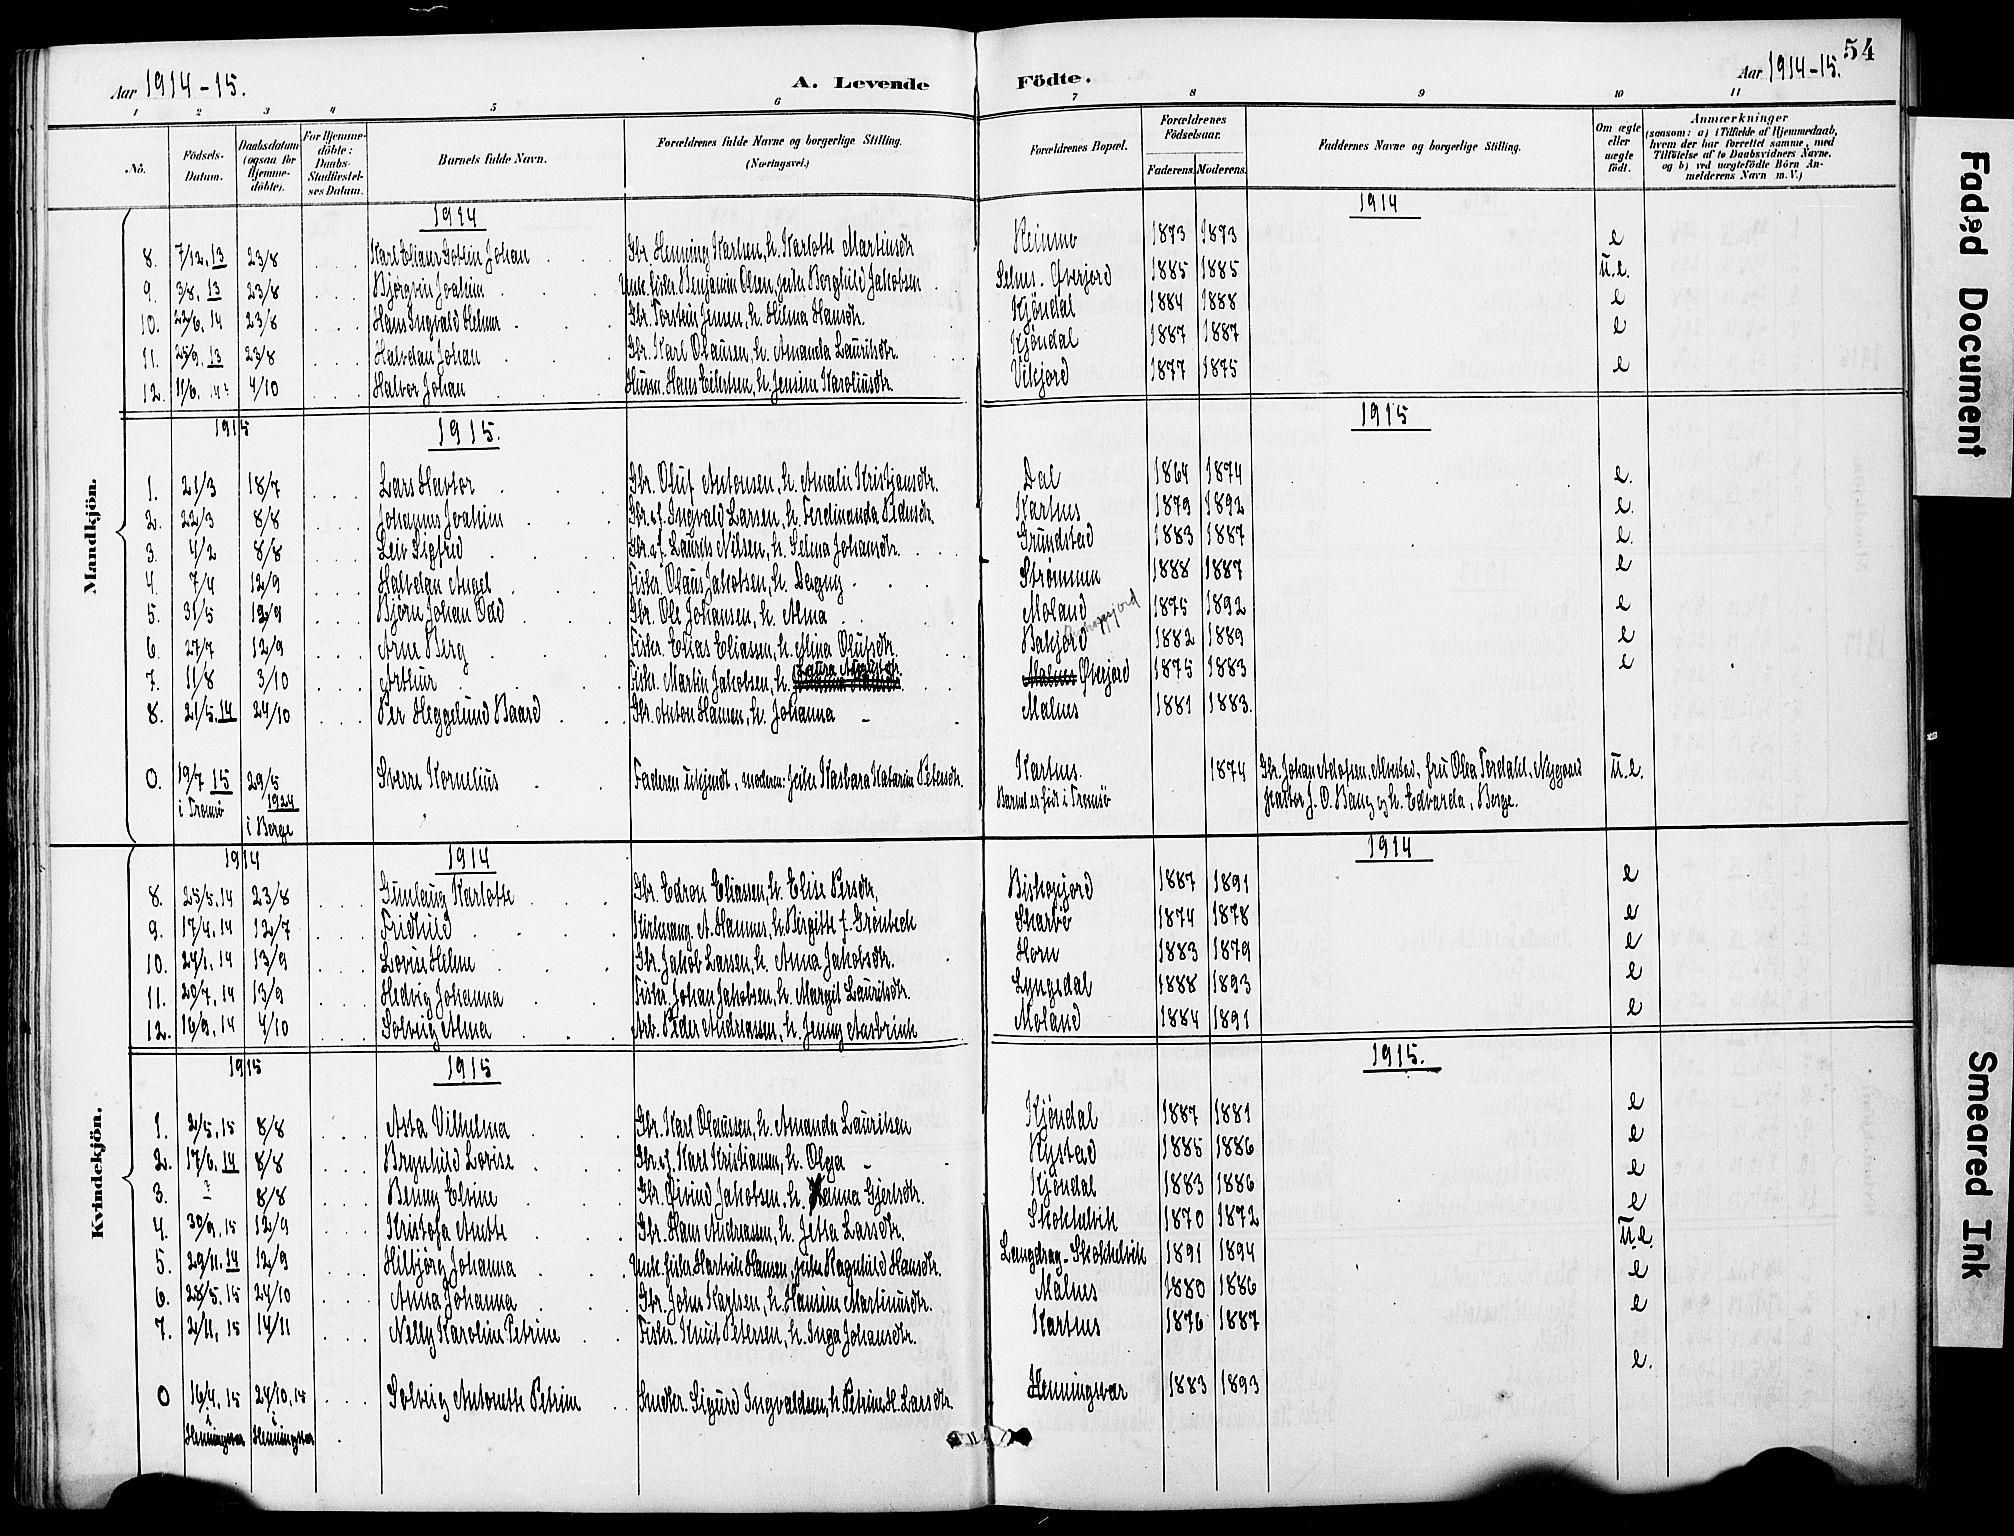 54
Aar 1914-15. A. Levende Födte. Aar 1914-15.
1 2 3 4 5 6 7 8 9 10 11
No. Födsels-Datum. Daabsdatum (ogsaa for Hjemme-döbte). For Hjemme-döbte: Daabs-Stadfæstel-ses Datum. Barnets fulde Navn. Forældrenes fulde Navne og borgerlige Stilling. (Næringsvei.) Forældrenes Bopæl. Forældrenes Födselsaar. Faderens. Moderens. Faddernes Navne og borgerlige Stilling. Om ægte eller uægte födt. Anmærkninger (saasom: a) i Tilfælde af Hjemmedaab, hvem der har forrettet samme, med Tilföielse af to Daabsvidners Navne, og b) ved uægtefödte Börn Anmelderens Navn m. V.)
Mandkjön.
1914 1914
8. 7/12. 13 23/8 Karl Johan Gbr. Henning Karlsen, h. Karlotte Martinsdtr Reinmo 1873 1873 e
9. 3/8. 13 23/8 Bjørgvin Joakim Unk. fisker Benjamin Olsen, pike Borghild Jakobsen Selnes. Øverjord 1885 1885 u.e.
10. 22/6. 14 23/8 Hans Ingvald Helmer Gbr. Torstein Jensen, h. Hilma Hansdtr. Kjøndal 1884 1888 e
11. 25/9. 13 23/8 Halvdan Johan Gbr. Karl Olausen, h. Amanda Lauritsdtr. Kjøndal 1887 1887 e
12. 11/6. 14 4/10 Halvor Johan Husm. Hans Eilertsen, h. Jensine Karoliusdtr. Vikjord 1877 1875 e
1915 1915. 1915
1. 21/3 18/7 Lars Havtor Gbr. Oluf Antonsen, h. Amalie Kristjansdtr. Dal 1864 1874 e.
2. 22/3 8/8 Johannes Joakim Gbr. & f. Ingvald Larsen, h. Ferdinanda Pedersdtr. Kartnes 1879 1892 e.
3. 4/2 8/8 Leiv Sigfred Gbr. & f. Laurits Nilsen, h. Selma Johansdtr. Grundstad 1883 1887 e.
4. 7/4 12/9 Halvdan Angel Fisker. Olaus Jakobsen, h. Dagny Strømmen 1888 1887 e
5. 31/5 12/9 Bjørn Johan Odd Gbr. Ole Johansen, h. Alma Moland 1875 1892 e
6. 27/7 12/9 Arne Berg Fisker. Elias Eliassen, h. Mina Olufsdtr. Bakjord 1882 1889 e
7. 11/8 3/10 Arthur Fisker. Martin Jakobsen, h. Laura Malnes Øverjord 1875 1883 e
8. 21/5. 14 24/10 Per Heggelund Baard Gbr. Anton Hansen, h. Johanna Malnes 1881 1883.
0. 19/7 15 29/5 Sverre Kornelius Faderen ukjendt, moderen: pike Katarine Petersdtr. Kartnes. 1874 Gbr. Johan Adolfsen, Alvestad, fru Olea Tordahl, Nygaard u.e.
i Tromsø 1924 Barnet er født i Tromsø pastor J. O. Bang og h. Edvarda, Borge.
i Borge
Kvindekjön.
1914 1914 1914
8. 25/5. 14 23/8 Gunlaug Karlotte Gbr. Edron Eliassen, h. Elise Persdtr. Biskopjord 1887 1891 e
9. 17/4. 14 12/7 Fridhild Kirkesang. A. Hannes, h. Birgitte f. Grønbech Skarbø 1874 1878 e
10. 24/1. 14 13/9 Lovise Helene Gbr. Jakob Larsen, h. Anna Jakobsdtr. Horn 1883 1879 e
11. 20/7. 14 13/9 Hedvig Johanna Fisker. Johan Jakobsen, h. Margit Lauritsdtr. Lyngedal 1888 1893 e
12. 16/9. 14 4/10 Solveig Alma Arb. Peder Andreassen, h. Jenny Aasbrink Moland 1884 1891 e
1915 1915 1915.
1. 2/5. 15 8/8 Asta Vilhelma Gbr. Karl Olaussen, h. Amanda Lauritsen Kjøndal 1887 1881 e
2. 17/6. 14 8/8 Brynhild Lovise Gbr. & f. Karl Kristiansen, h. Olga Rystad 1885 1886 e
3. ? 8/8 Benny Elvine Gbr. Øivind Jakobsen, h. Hanna Gjertsdtr. Kjøndal 1883 1886 e
4. 30/9. 15 12/9 Kristofa Anette Gbr. Hans Andreassen, h. Jetta Larsdtr. Skokkelvik 1870 1872 e
5. 29/11. 14 12/9 Hilbjørg Johanna Unk. fisker Hartvik Hansen, pike Ragnhild Hansdtr. Langdrag-Skokkelvik 1891 1894 u.e.
6. 28/5. 15 24/10 Anna Johanna Gbr. John Karlsen, h. Hansine Martinusdtr. Malnes 1880 1886 e
7. 2/11. 15 14/11 Nelly Karoline Petrine Fisker. Knut Petersen, h. Inga Johansdtr. Kartnes 1876 1887 e
0 16/4. 15 24/10. 15 Solveig Antonette Petrine Snedker. Sigurd Ingvaldsen, h. Petrine H. Larsdtr. Henningsvær 1883 1893 e.
i Henningsvær i Henningsvær
Faded Document
Smeared Ink